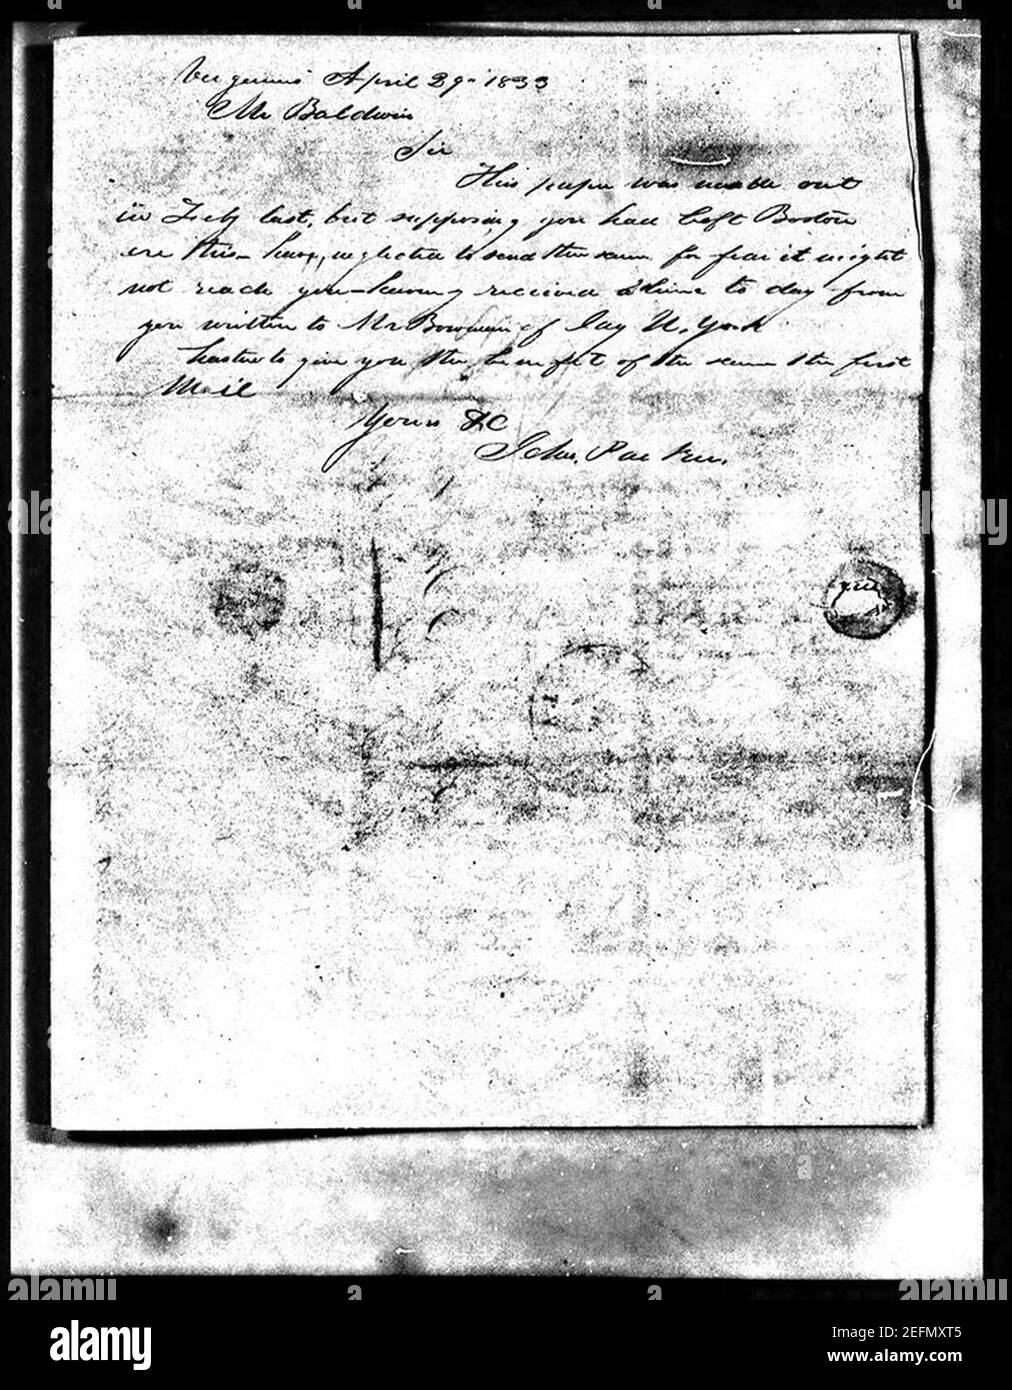 Vergennes April 29 - 1833
Mr Baldwin
Sir
This paper was made out
in Feby last, but supposing you had left Boston
ere this - have, neglected to send the same for fear it might
not reach you - having received a line to day from
you written to Mr Bowman of Jay N. York
hasten to give you the benefit of the same the first
Mail
Yours &C
John. Parker.
alamy
Image ID: 2EFMXT5
www.alamy.com